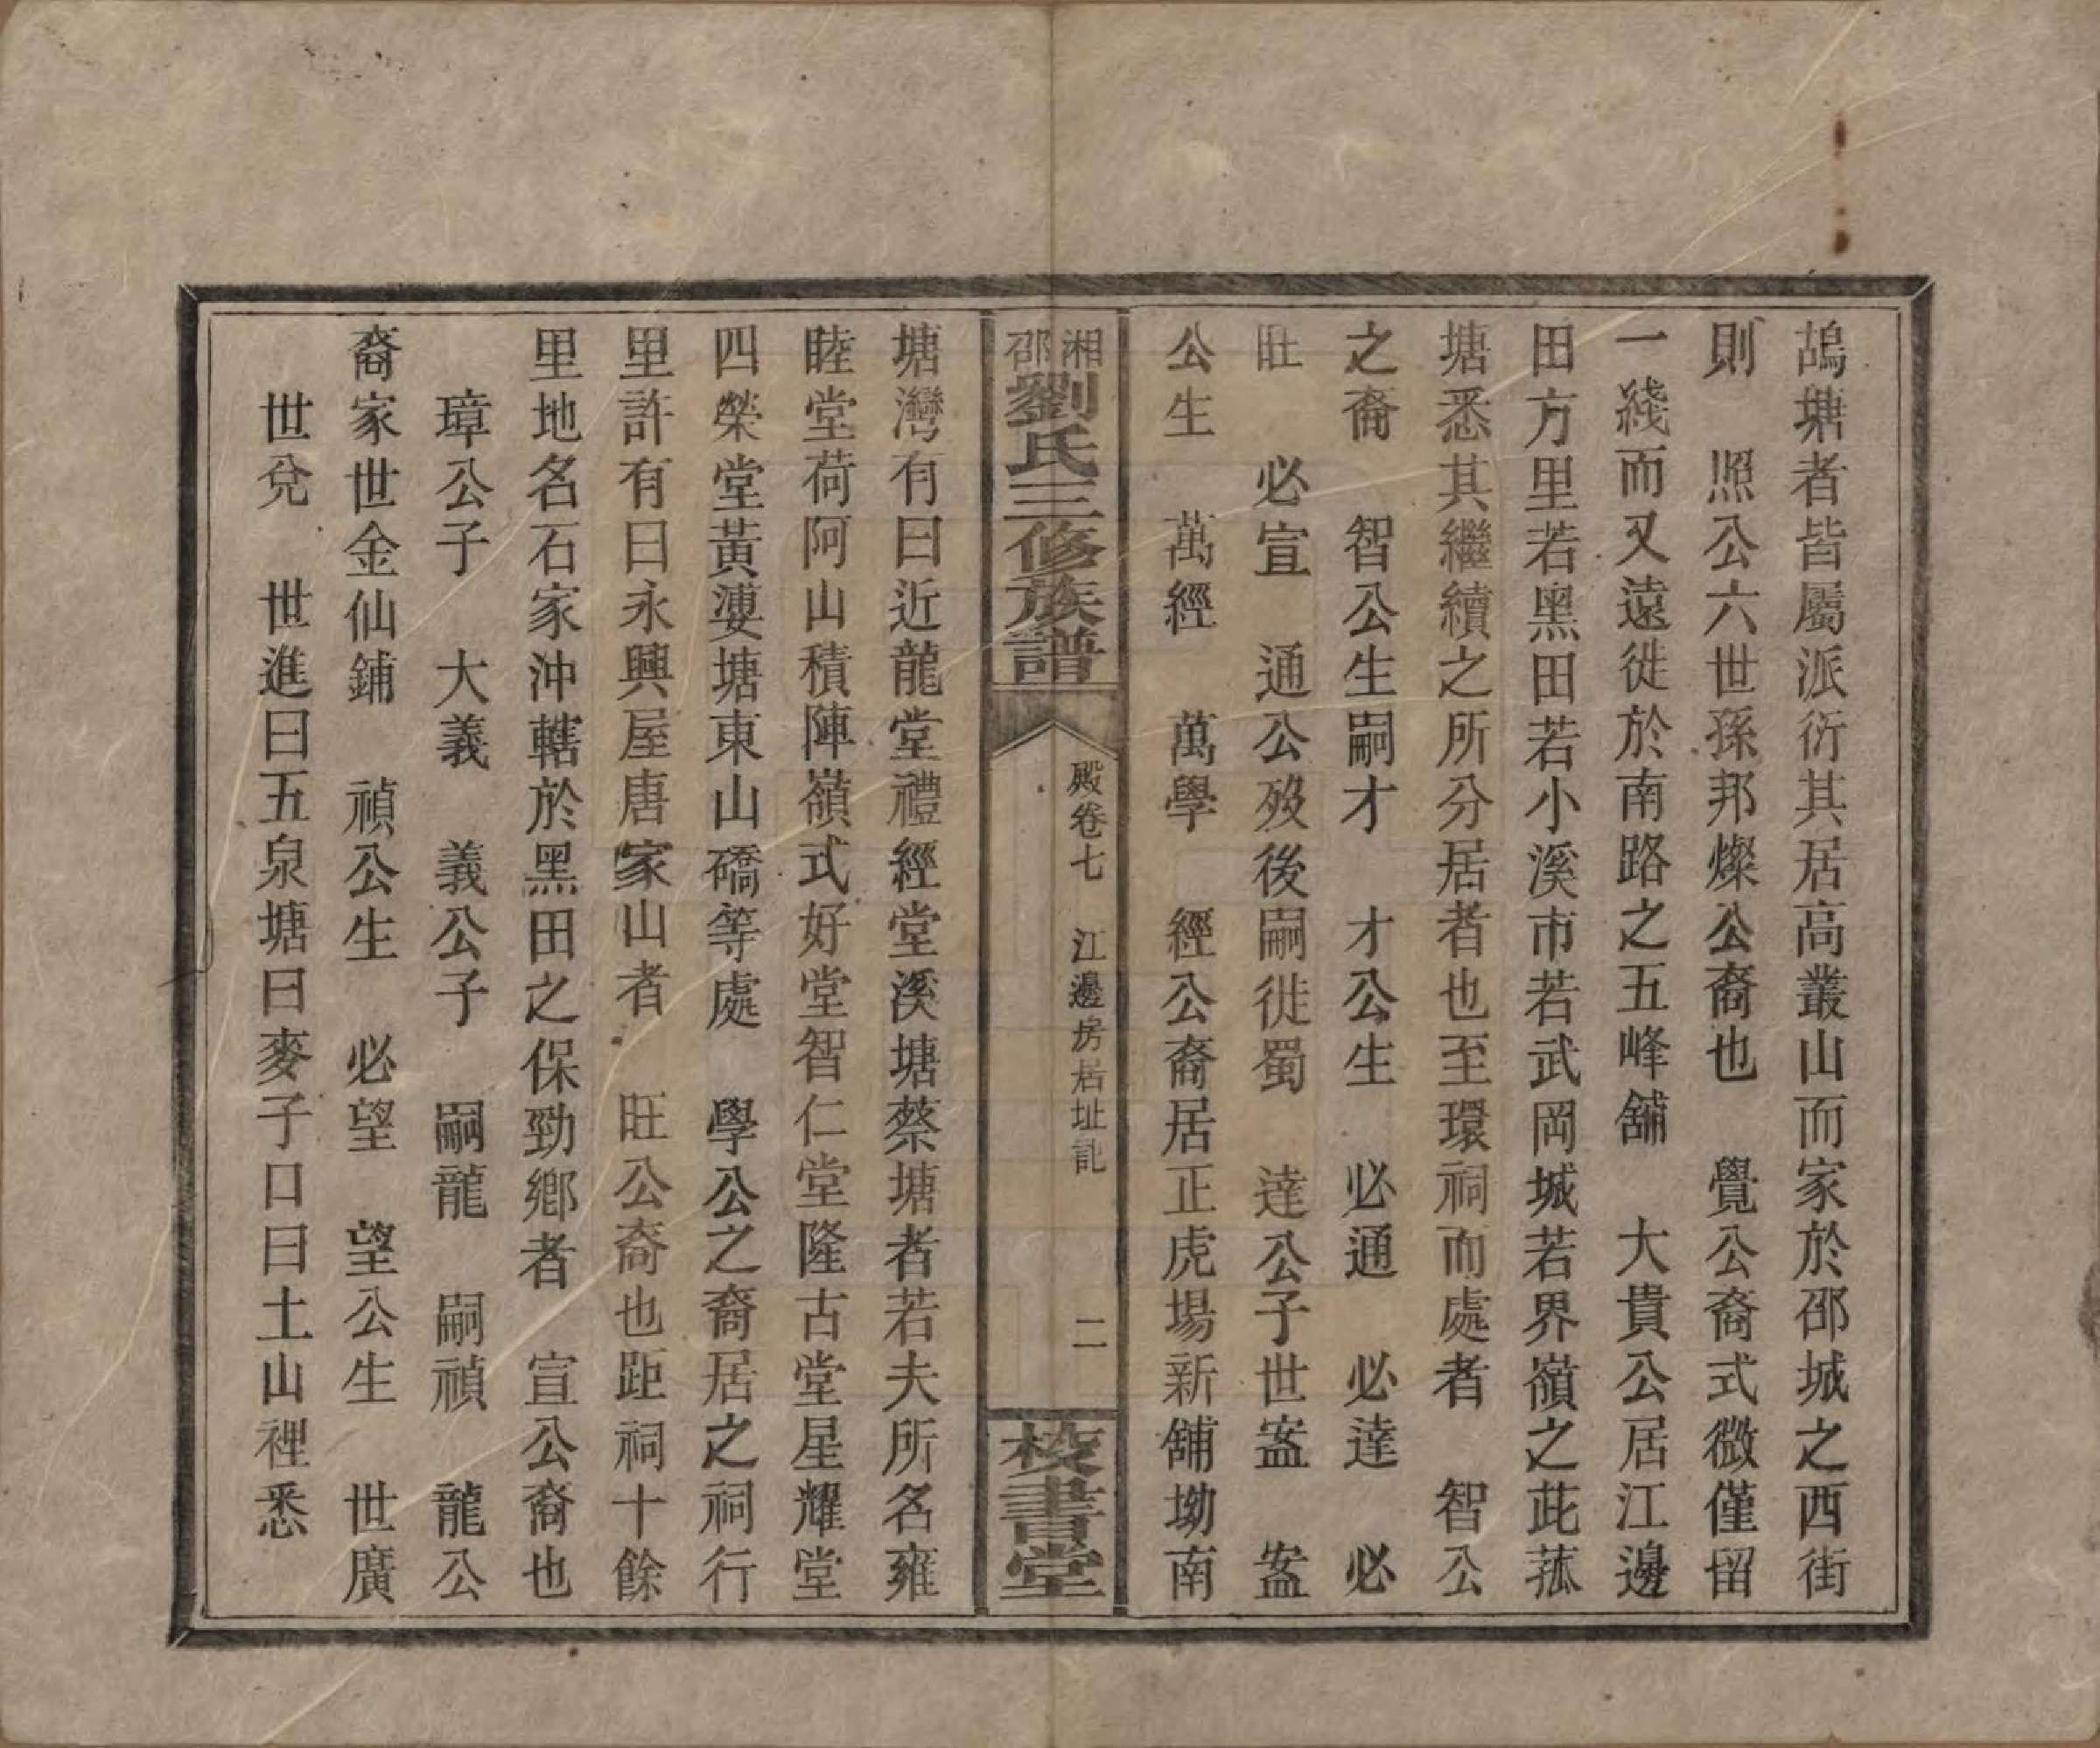 鴣塘者皆屬派衍其居高叢山而家於邵城之西街
則　照公六世孫邦燦公裔也　覺公裔式微僅留
一綫而又遠徙於南路之五峰舖　大貴公居江邊
田方里若黑田若小溪市若武岡城若界嶺之茈菰
塘悉其繼續之所分居者也至環祠而處者　智公
之裔　智公生嗣才　才公生　必通　必達　必
旺　必宣　通公歿後嗣徙蜀　達公子世盝　盝
公生　萬經　萬學　經公裔居正虎場新舖坳南
湘邵劉氏三修族譜
殿卷七　江邊房居址記　二
校書堂
塘灣有曰近龍堂禮經堂溪塘蔡塘者若夫所名雍
睦堂荷阿山積陣嶺式好堂智仁堂隆古堂星耀堂
四榮堂黃㵏塘東山礄等處　學公之裔居之祠行
里許有曰永興屋唐家山者　旺公裔也距祠十餘
里地名石家沖轄於黑田之保勁鄉者　宣公裔也
璋公子　大義　義公子　嗣龍　嗣禎　龍公
裔家世金仙鋪　禎公生　必望　望公生　世廣
世兌　世進曰五泉塘曰麥子口曰土山裡悉